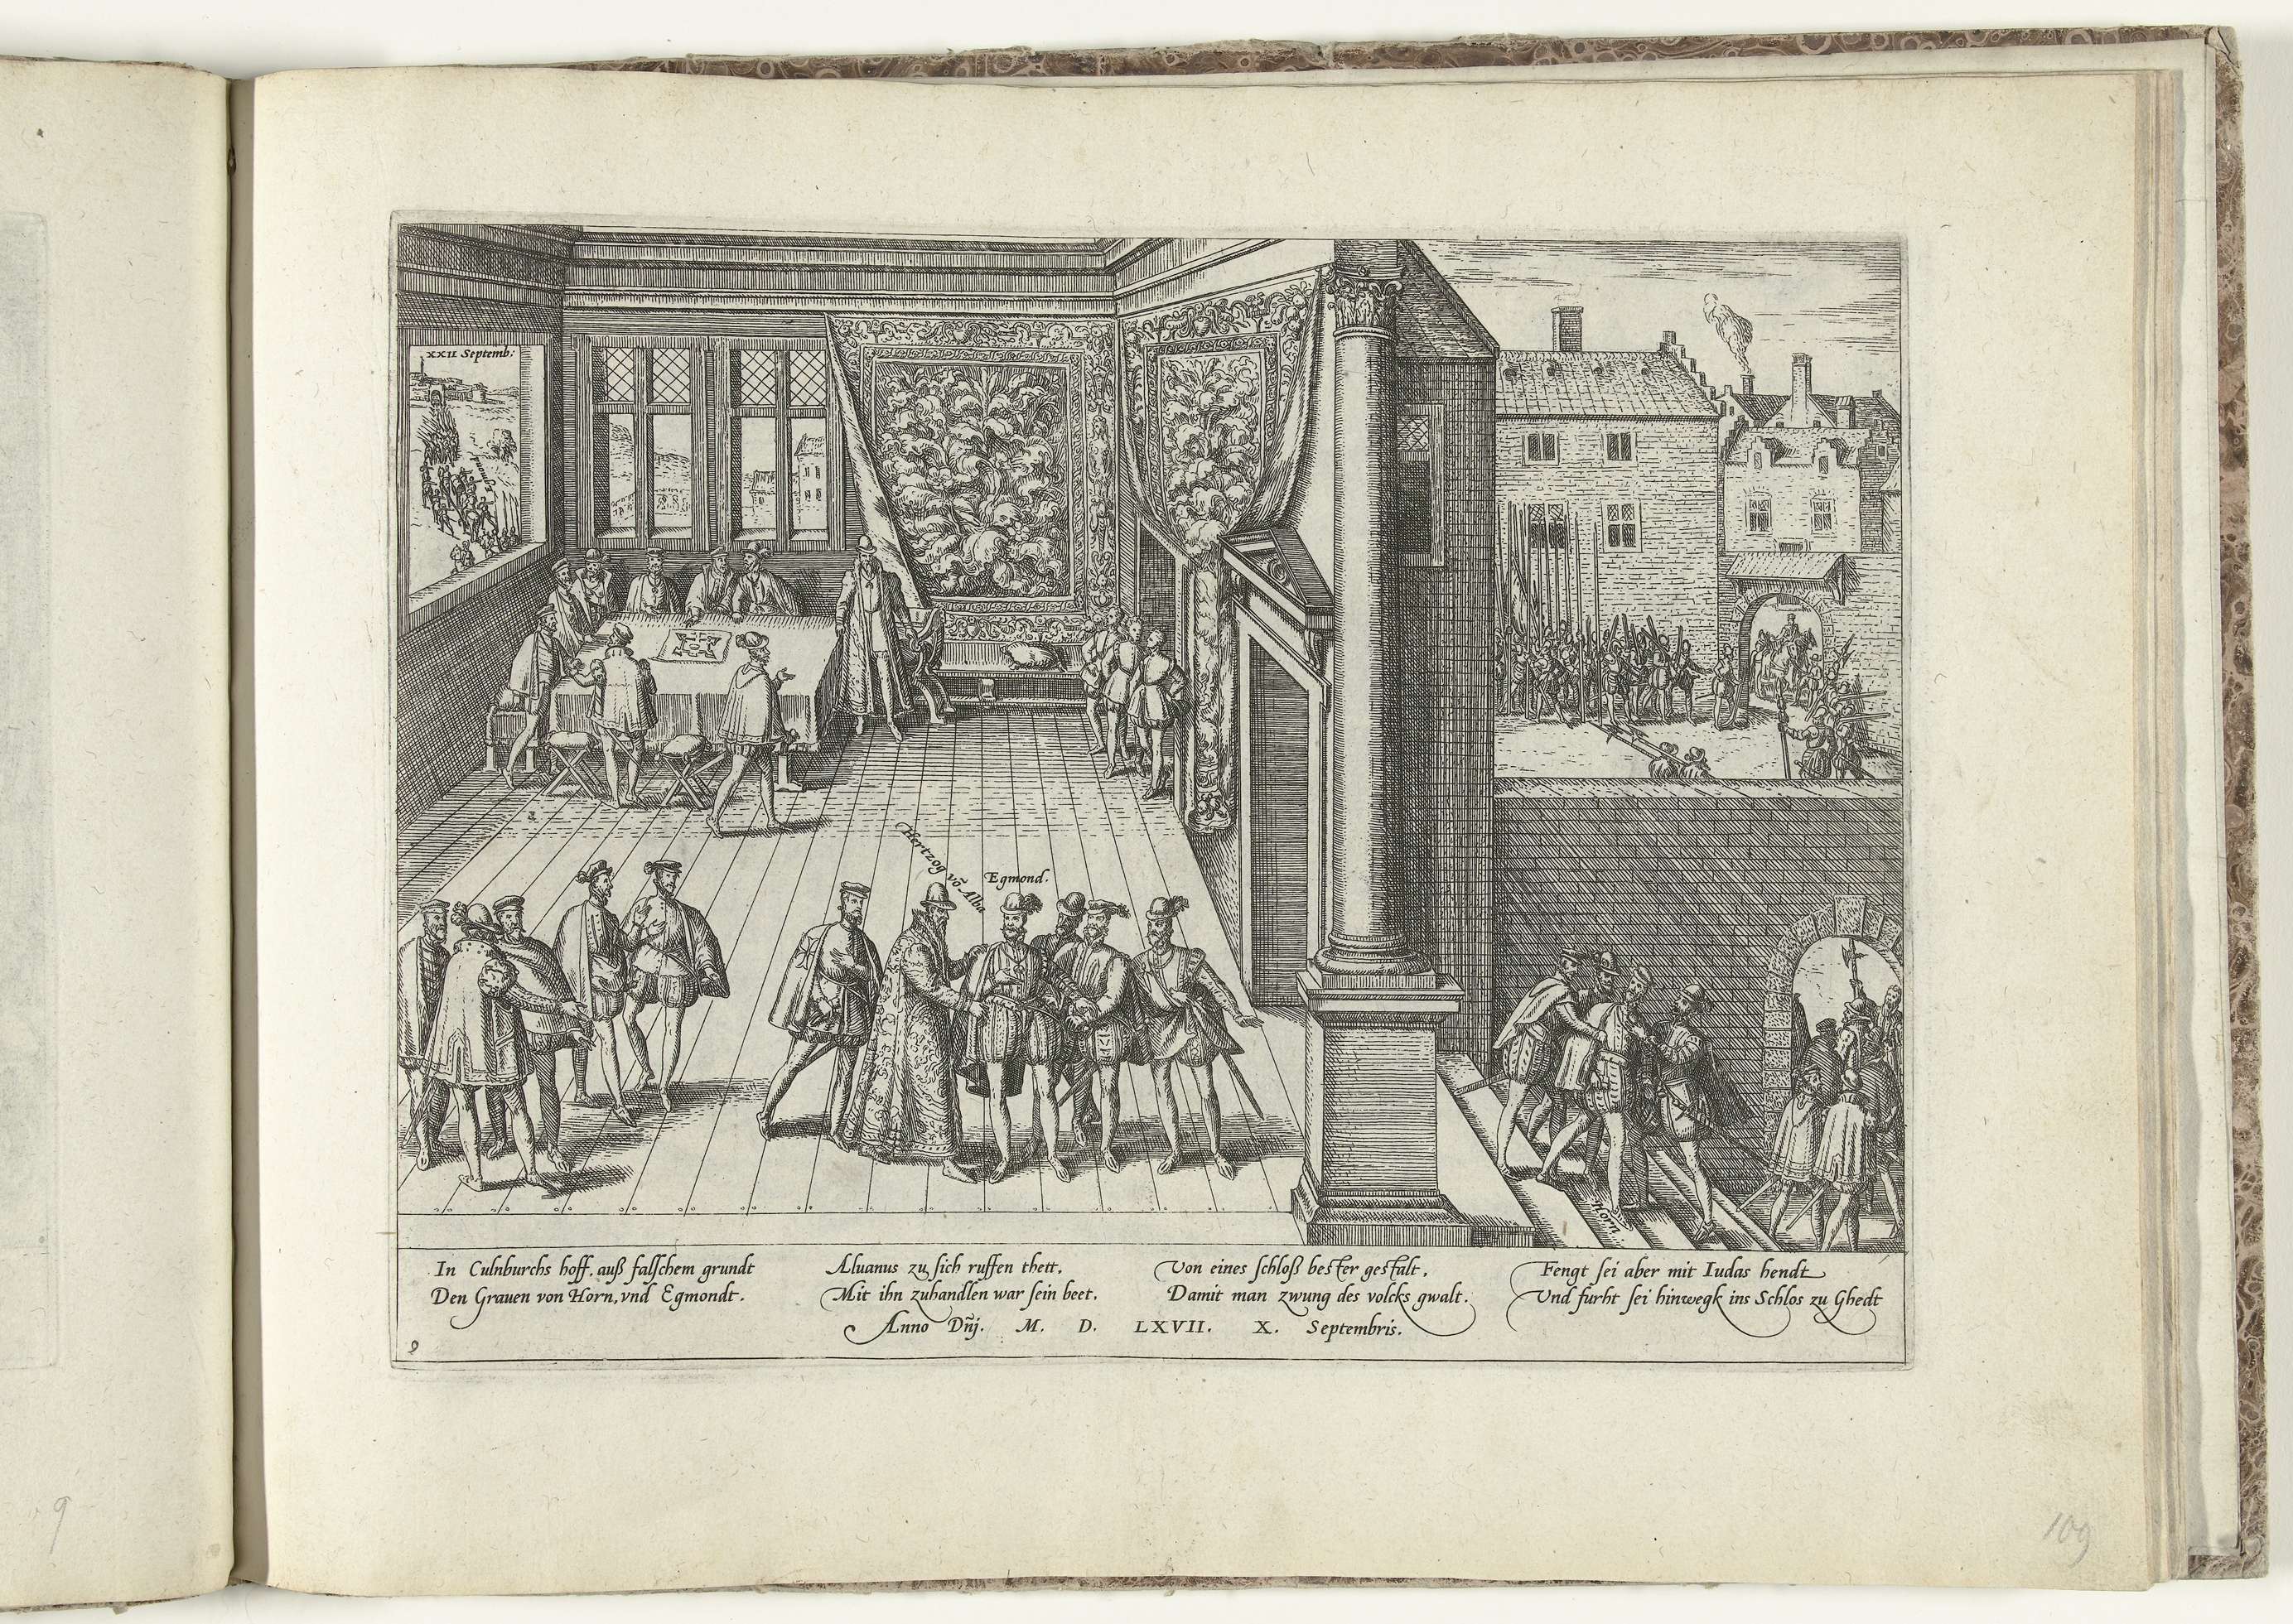 XXII Septemb:
Egmont
Hertzog võ Alba
Egmond.
Horn
In Culnburchs hoff, auß falschem grundt
Den Grauen von Horn, vnd Egmondt.
Aluanus zu sich ruffen thett,
Mit ihn zuhandlen war sein beet,
Von eines schloß bester gestalt,
Damit man zwung des volcks gwalt.
Fengt sei aber mit Iudas hendt
Vnd furht sei hinwegk ins Schlos zu Ghedt
Anno Dñj. M. D. LXVII. X. Septembris.
9
9
109